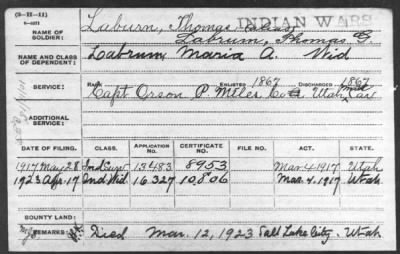 (3-II-11)
INDIAN WARS
NAME OF SOLDIER: Laburn, Thomas
Labrum, Thomas G.
NAME AND CLASS OF DEPENDENT: Labrum, Maria A. Wid
SERVICE: RANK ENLISTED 1867 DISCHARGED 1867
Capt Orson P. Miles Co Utah Mil Cav
ADDITIONAL SERVICE:
DATE OF FILING. CLASS. APPLICATION NO. CERTIFICATE NO. ACT. STATE.
1917 May 28 Ind Surv 13483 8953 Mar. 4. 1917 Utah
1923 Apr. 17 Ind Wid 16327 10806 Mar. 4. 1917 Utah
BOUNTY LAND:
REMARKS: Died Mar. 12, 1923 Salt Lake City, Utah